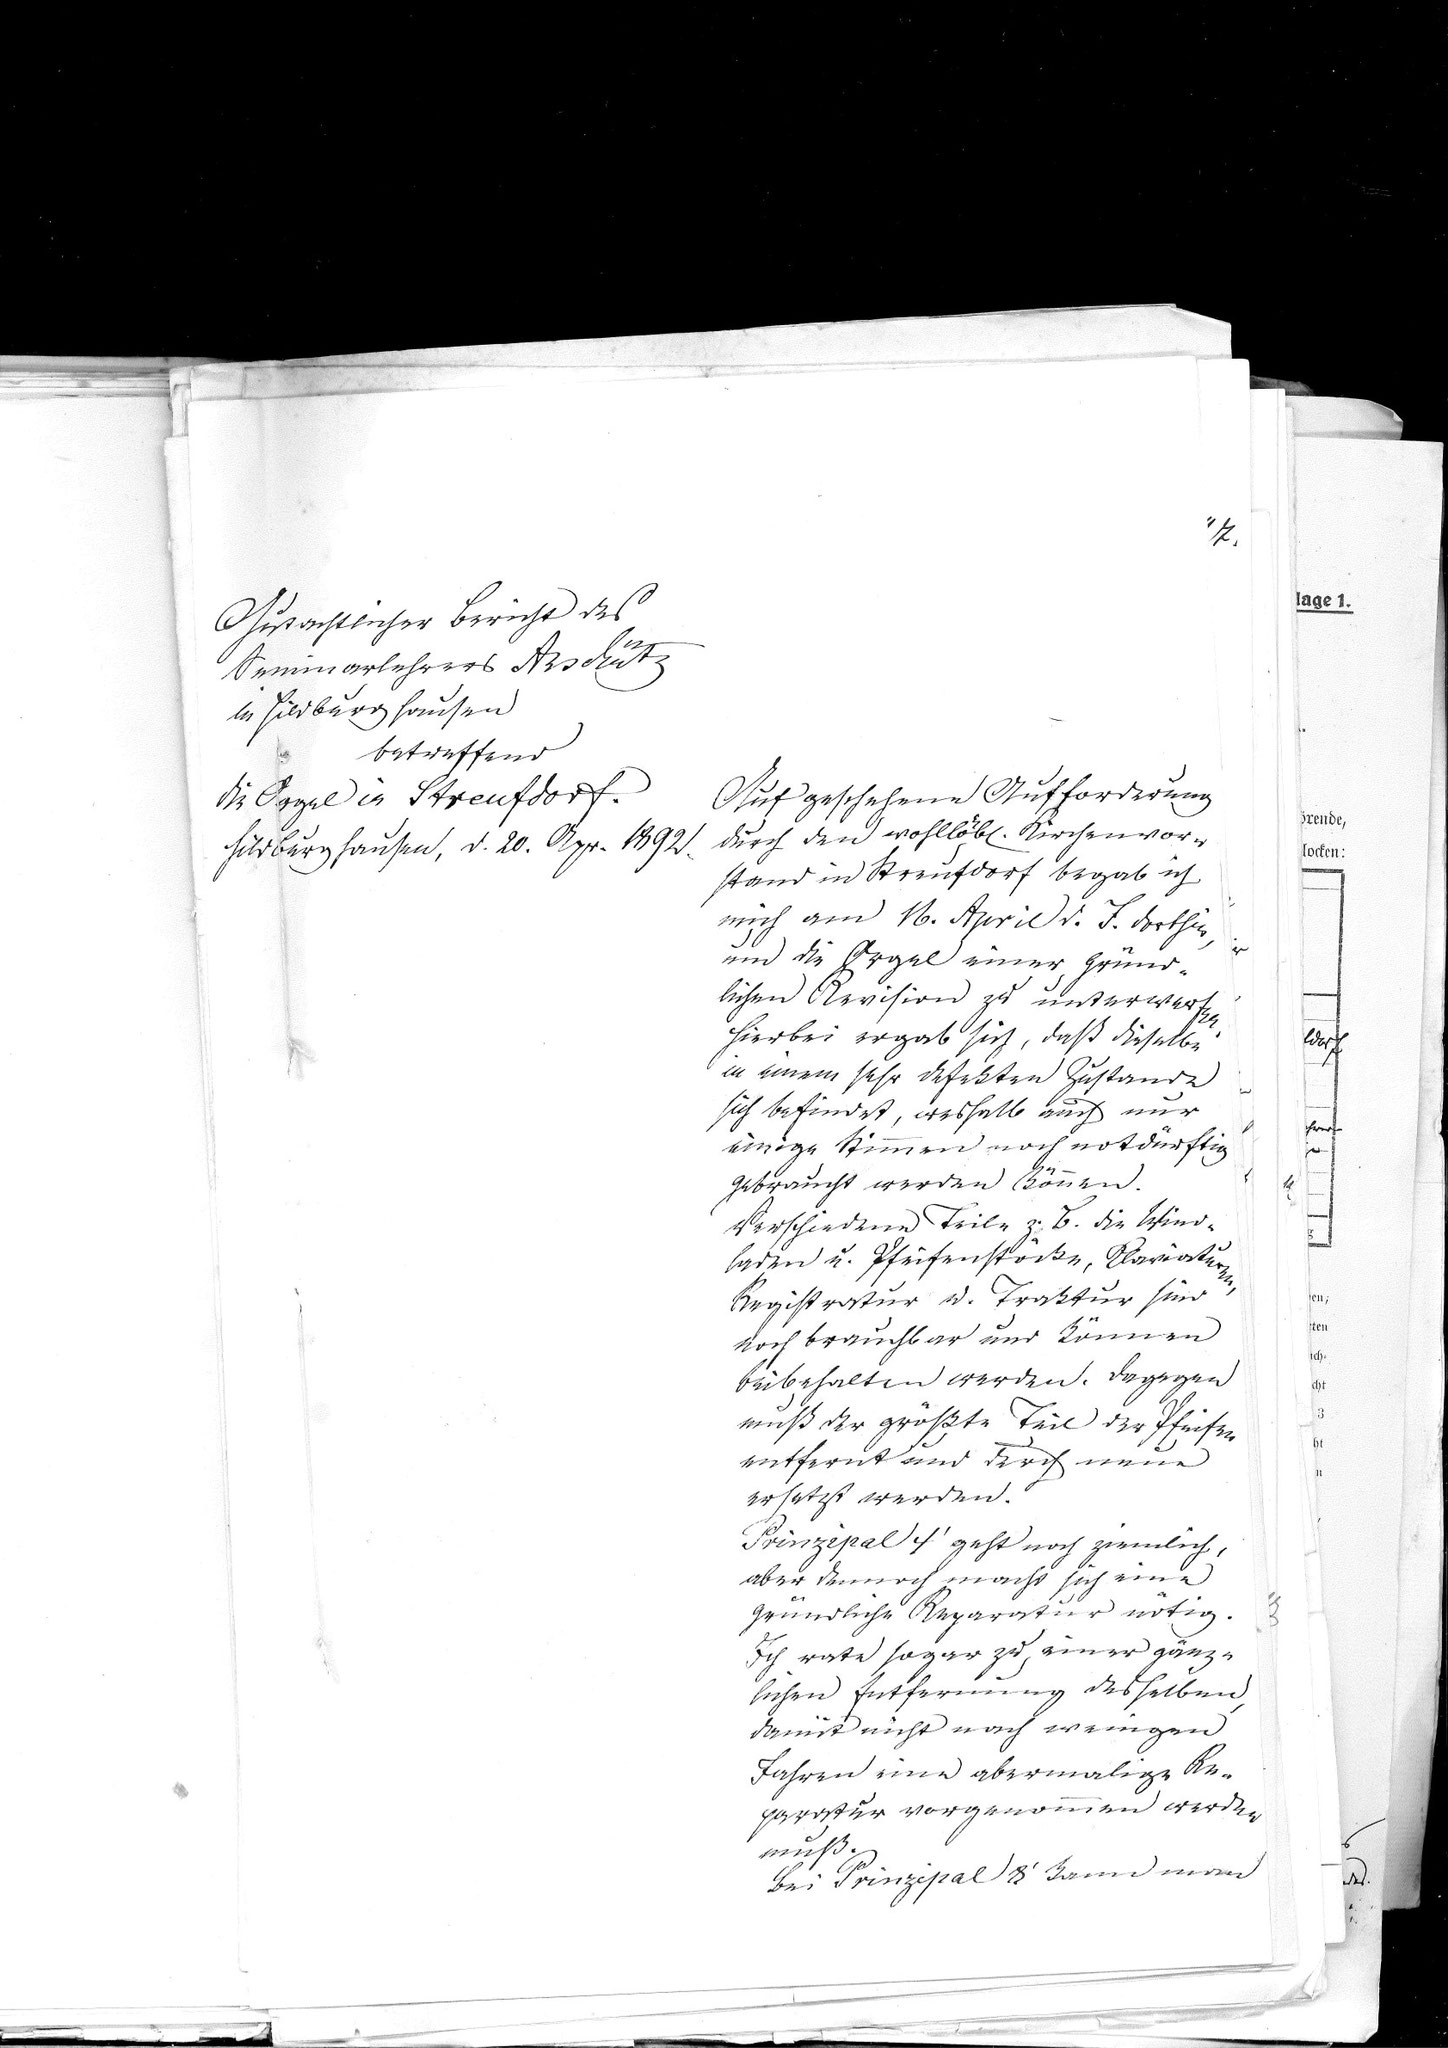 "7.
Gutachtlicher Bericht des
Seminarlehrers Anschütz
in Hildburghausen
betreffend
die Orgel in Streufdorf.
Hildburghausen, d. 20. Apr. 1892.
Auf geschehene Aufforderung
durch den wohllöbl. Kirchenvor-
stand in Streufdorf begab ich
mich am 16. April d. J. dorthin,
um die Orgel einer gründ-
lichen Revision zu unterwerfen.
Hierbei ergab sich, daß dieselbe
in einem sehr defekten Zustande
sich befindet, weshalb auch nur
einige Stimmen noch notdürftig
gebraucht werden können.
Verschiedene Teile z. B. die Wind-
laden u. Pfeifenstöcke, Klaviaturen,
Registratur u. Traktur sind
noch brauchbar und können
beibehalten werden. Dagegen
muß der größte Teil der Pfeifen
entfernt und durch neue
ersetzt werden.
Prinzipal 4' geht noch ziemlich,
aber dennoch macht sich eine
gründliche Reparatur nötig.
Ich rate sogar zu einer gänz-
lichen Entfernung desselben,
damit nicht nach wenigen
Jahren eine abermalige Re-
paratur vorgenommen werden
muß.
Bei Prinzipal 8' kann man
lage 1.
örende,
locken:
ldorf